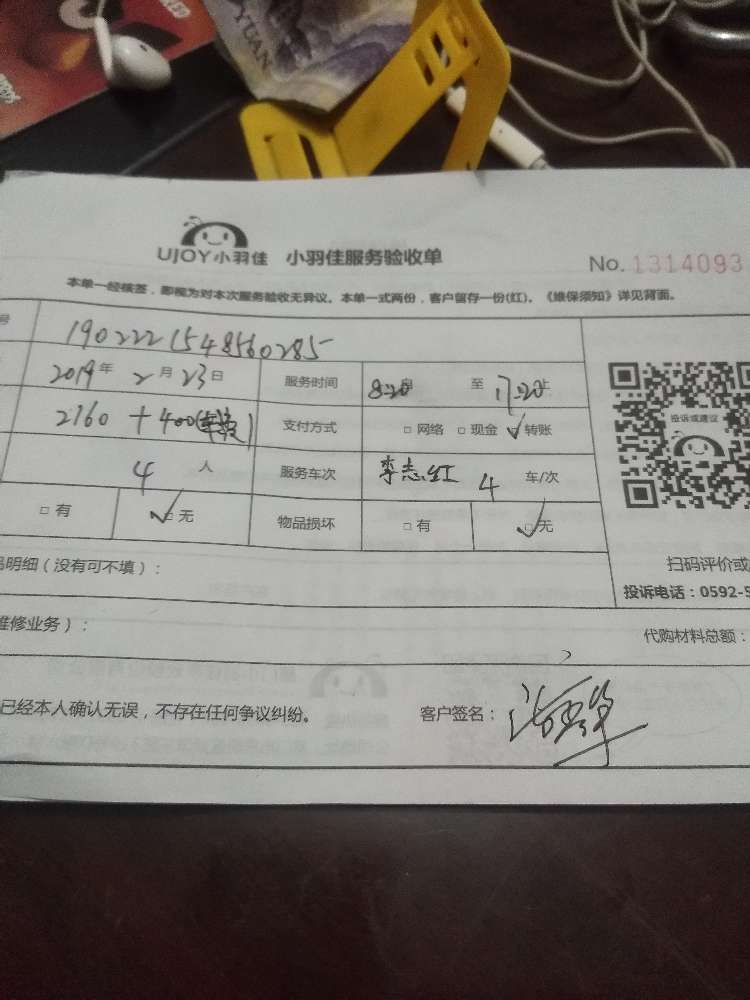 YUAN
UJOY小羽佳 小羽佳服务验收单 No. 1314093
本单一经核签，即视为对本次服务验收无异议。本单一式两份，客户留存一份(红)。《维保须知》详见背面。
号 1902221548560285
2019年 2月 23日 服务时间 8:20 至 17:20止
2160 + 400 支付方式 □网络 □现金 ☑转账
投诉或建议
4 人 服务车次 李志红 4 车/次
□有 ☑无 物品损坏 □有 ☑无
品明细（没有可不填）： 扫码评价或
投诉电话：0592-5
维修业务）： 代购材料总额：
已经本人确认无误，不存在任何争议纠纷。 客户签名：